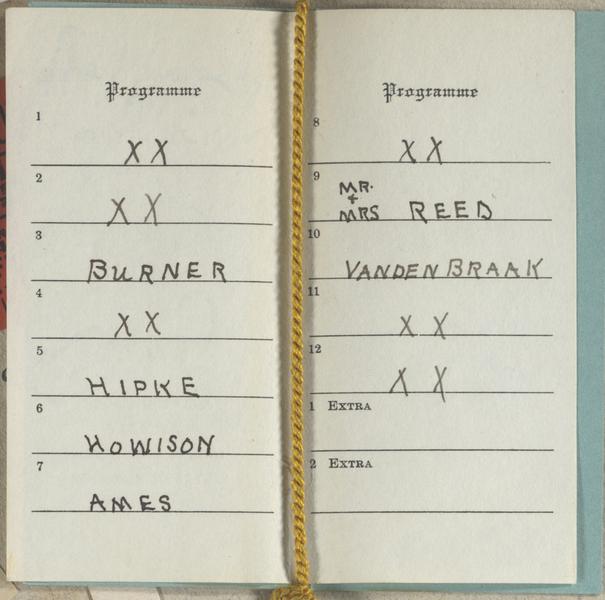 Programme
1
X X
2
X X
3
BURNER
4
X X
5
HIPKE
6
HOWISON
7
AMES
Programme
8
X X
9
MR.
+
MRS REED
10
VANDENBRAAK
11
X X
12
X X
1 EXTRA
2 EXTRA